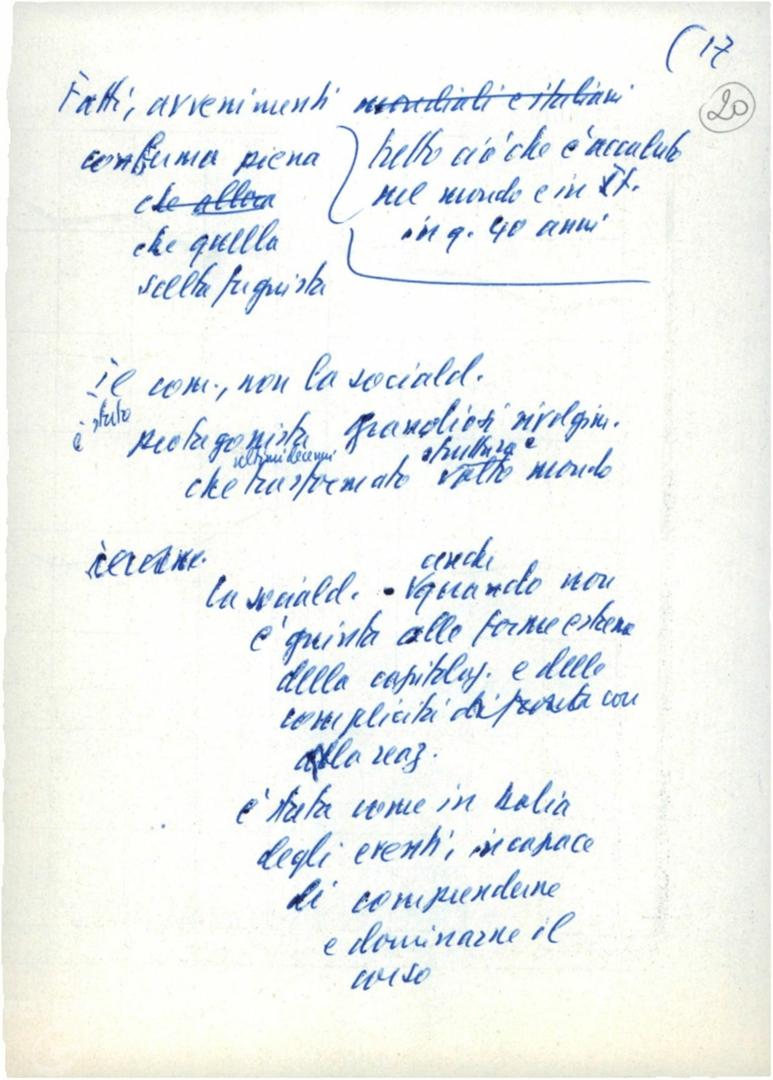 (17
20
Fatti, avvenimenti mondiali e italiani
conferma piena
che allora
che quella
scelta fu giusta
tutto ciò che è accaduto
nel mondo e in It.
in q. 40 anni
il com., non la sociald.
è stato
protagonista grandiosi rivolgim.
ultimi decenni struttura e
che trasformato volto mondo
anche
la sociald. quando non
è giunta alle forme estreme
della capitolaz. e delle
complicità con
la reaz.
è stata come in balia
degli eventi, incapace
di comprenderne
e dominarne il
corso